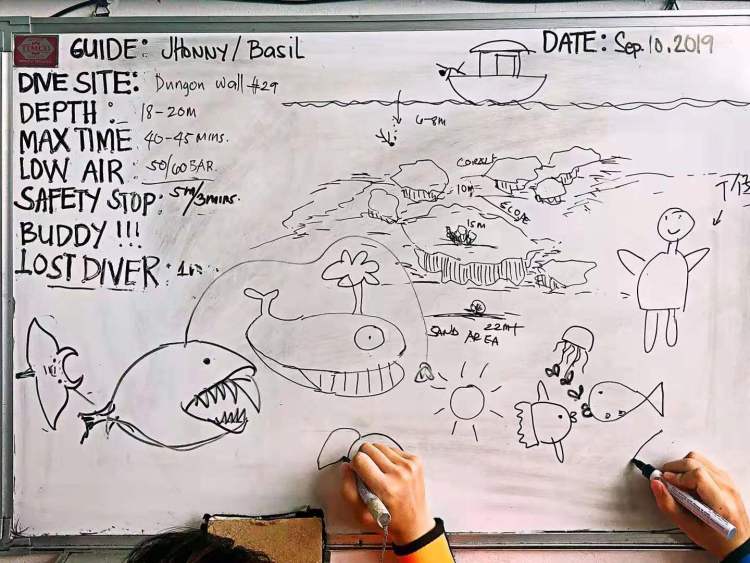 GUIDE: JHONNY/BASIL
DATE: Sep.10.2019
DIVE SITE: Dungon wall #29
DEPTH: 18-20M
MAX TIME 40-45 MINS.
LOW AIR: 50/60 BAR.
SAFETY STOP: 5M/3MINS.
BUDDY !!!
LOST DIVER: 1
6-8M
10M
15M
SAND AREA 22M+